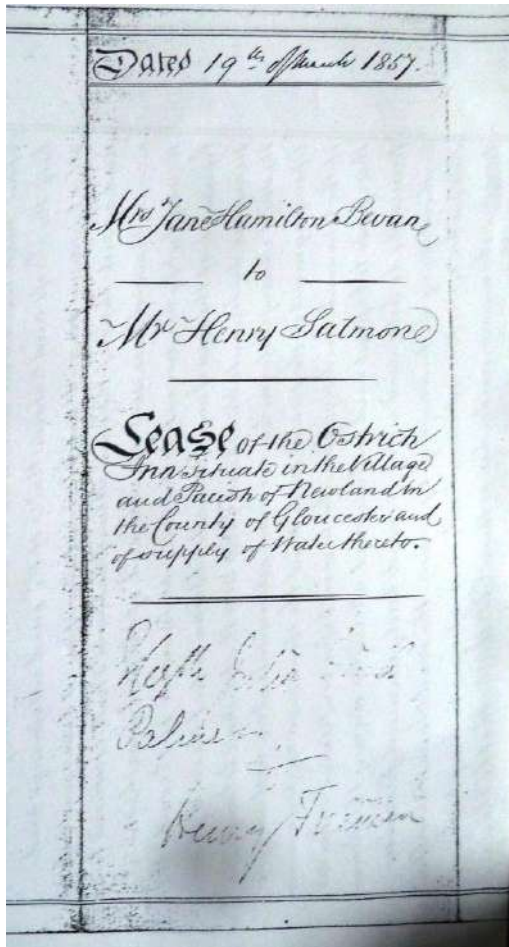 Dated 19th of March 1857.
Mrs Jane Hamilton Bevan
to
Mr Henry Salmon
Lease of the Ostrich
Inn situate in the Village
and Parish of Newland in
the County of Gloucester and
of supply of Water thereto.
Julia
Palmer
Henry